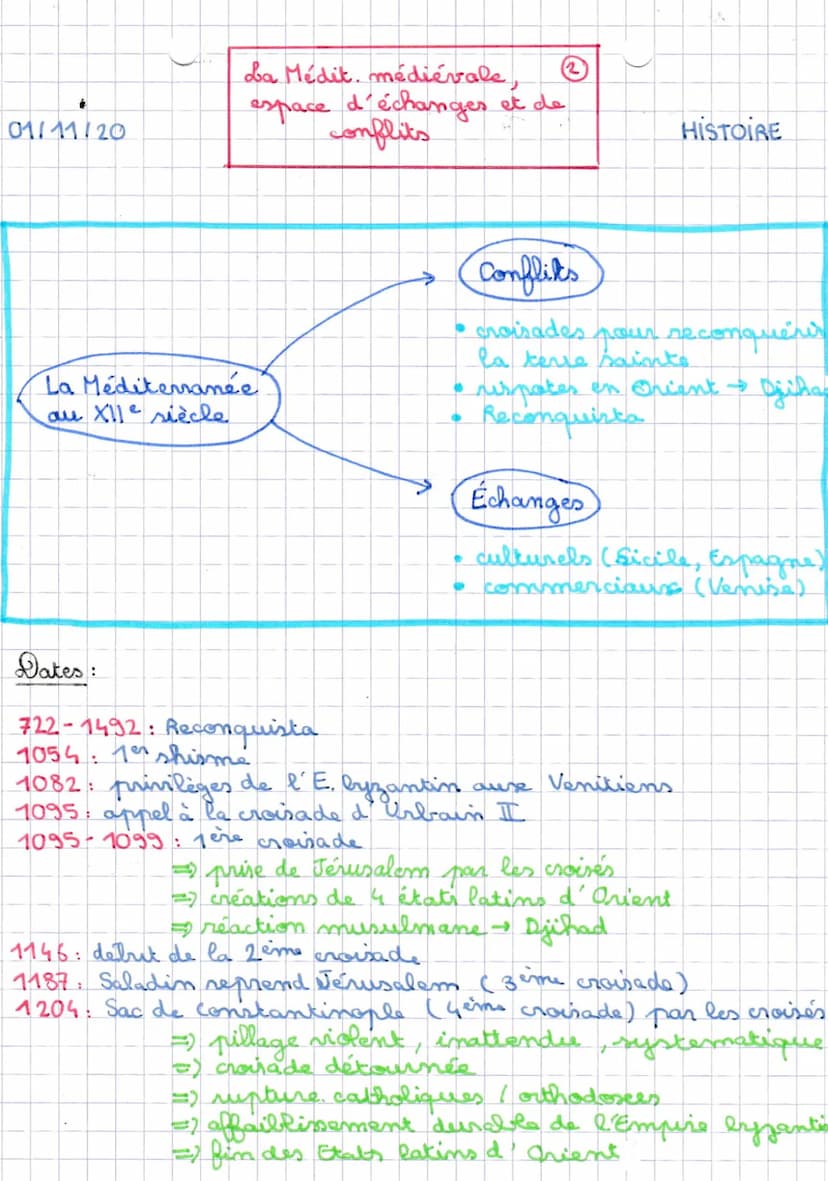 La Médit. médiévale, 2
espace d'échanges et de
conflits
01/11/20
HISTOIRE
Conflits
• croisades pour reconquérir
la terre sainte
La Méditerranée
au XIIe siècle
• rispotes en Orient → Djihad
• Reconquista
Échanges
• culturels (Sicile, Espagne)
• commerciaux (Venise)
Dates :
722-1492 : Reconquista
1054 : 1er shisme
1082 : privilèges de l'E. byzantin aux Venitiens
1095 : appel à la croisade d'Urbain II
1095-1099 : 1ère croisade
=> prise de Jérusalem par les croisés
=> créations de 4 états latins d'Orient
=> réaction musulmane → Djihad
1146 : debut de la 2ème croisade
1187 : Saladin reprend Jérusalem (3ème croisade)
1204 : Sac de Constantinople (4ème croisade) par les croisés
=> pillage violent, inattendu, systematique
=> croisade détournée
=> rupture catholiques / orthodoxes
=> affaiblissement durable de l'Empire byzanti
=> fin des Etats latins d'Orient